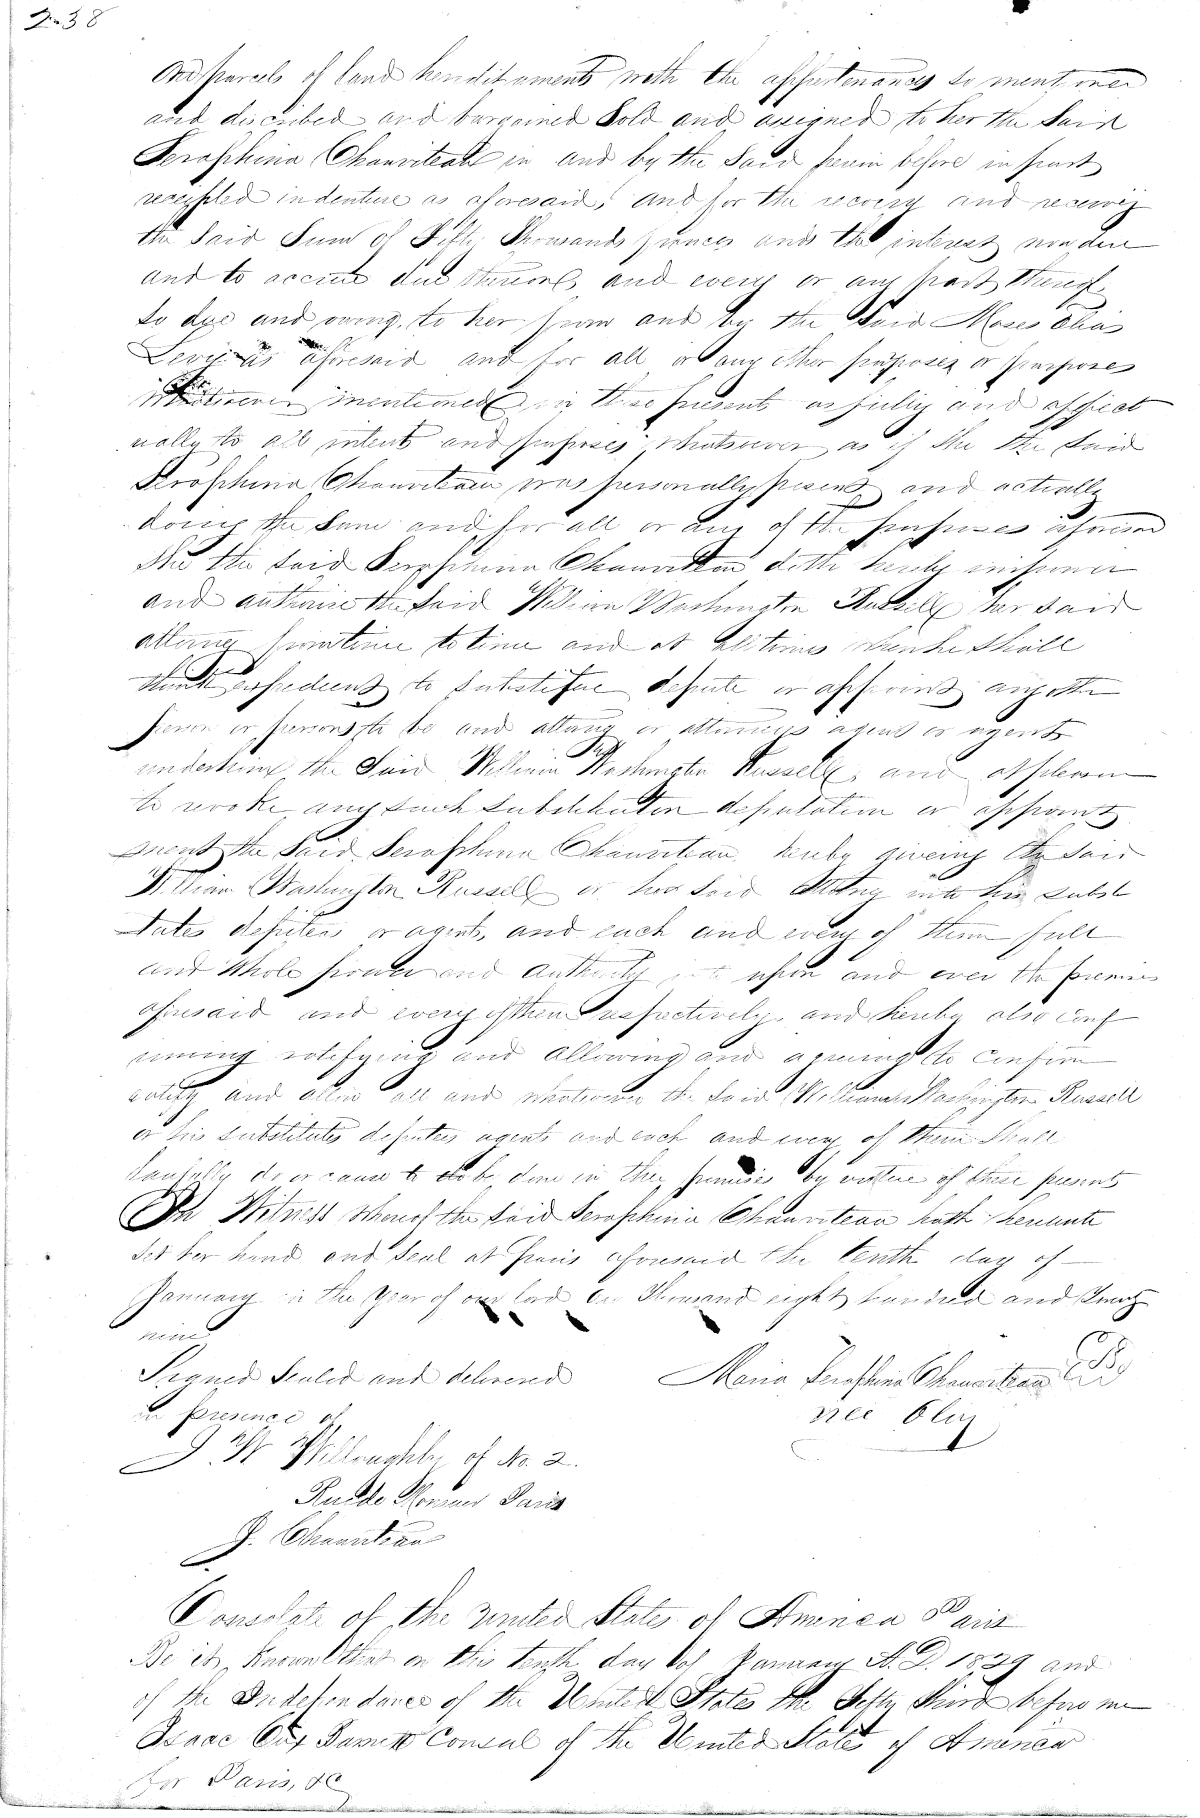 238
and parcels of land hereditaments with the appurtenances so mentioned
and discribed and bargained Sold and assigned to her the Said
Seraphina Chauviteau in and by the Said herein before in part
recited indenture as aforesaid, and for the recovery and receiving
the Said Sum of Fifty Thousands francs and the interest now due
and to accrue due thereon, and every or any part thereof
so due and owing to her from and by the Said Moses Elias
Levy as aforesaid and for all or any other purposes or purposes
whatsoever mentioned in these presents as fully and effect
ually to all intents and purposes whatsoever as if She the Said
Seraphina Chauviteau was personally present and actually
doing the Same and for all or any of the purposes aforesaid
She the Said Seraphina Chauviteau doth hereby impower
and authorise the Said William Washington Russell her Said
attorney from time to time and at all times when he Shall
think expedient to Substitute depute or appoint any other
person or persons to be and attorney or attornies agent or agents
under him the Said William Washington Russell, and at pleasure
to revoke any such Substitution deputation or appoint
ment the Said Seraphina Chauviteau hereby giveing the Said
William Washington Russell or her Said attorney into his Substi
tutes deputies or agents, and each and every of them full
and whole power and authority upon and over the premises
aforesaid and every of them respectively, and hereby also conf
irming ratifying and allowing and agreeing to confirm
ratify and allow all and whatsoever the Said William Washington Russell
or his Substitutes deputies agents and each and every of them Shall
lawfully do or cause to be done in the premises by virtue of these presents
In Witness whereof the Said Seraphina Chauviteau hath hereunto
Set her hand and Seal at Paris aforesaid the tenth day of
January in the year of our Lord One Thousand eight hundred and Twenty
nine
Signed Sealed and delivered Maria Seraphina Chauviteau
in presence of nee
J W Willoughby of No. 2.
Rue de Paris
J. Chauviteau
Consolate of the United States of America Paris
Be it Known that on this tenth day of January A.D. 1829 and
of the Independance of the United States the Fifty third before me
Isaac Cox Barnett Consul of the United States of America
for Paris, &C